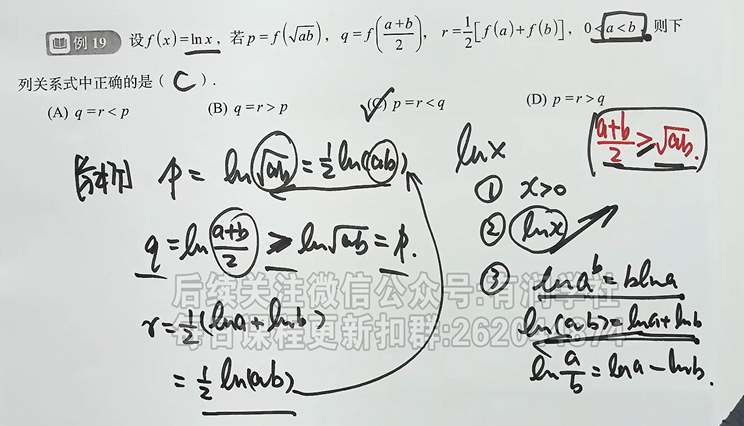 例 19 设 f(x)=ln x, 若 p=f(√ab), q=f((a+b)/2), r=1/2[f(a)+f(b)], 0<a<b, 则下
列关系式中正确的是( C ).
(A) q=r<p (B) q=r>p (C) p=r<q (D) p=r>q
a+b/2 > √ab.
[解析] p = ln√ab = 1/2 ln(ab)
q = ln a+b/2 > ln√ab = p.
r = 1/2(lna+lnb)
= 1/2 ln(ab)
lnx
① x>0
② lnx
③ lna^b = blna
ln(ab) = lna+lnb
ln a/b = lna-lnb.
后续关注微信公众号:青湖学社
每日课程更新扣群:2620